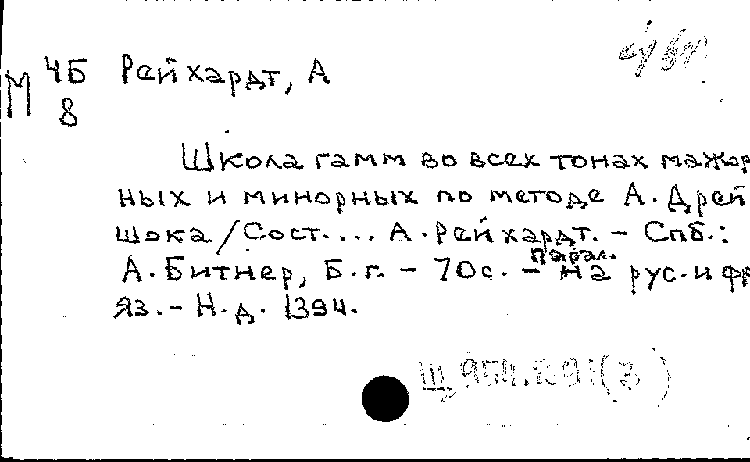 М 4Б Рейхардт, А
8
Школа гамм во всех тонах мажор
ных и минорных по методе А. Дрей
шока / Сост.... А. Рейхардт. - Спб.:
А. Битнер, Б.г. - 70с. - Парал. на рус. и фр
яз. - Н.д. 1394.